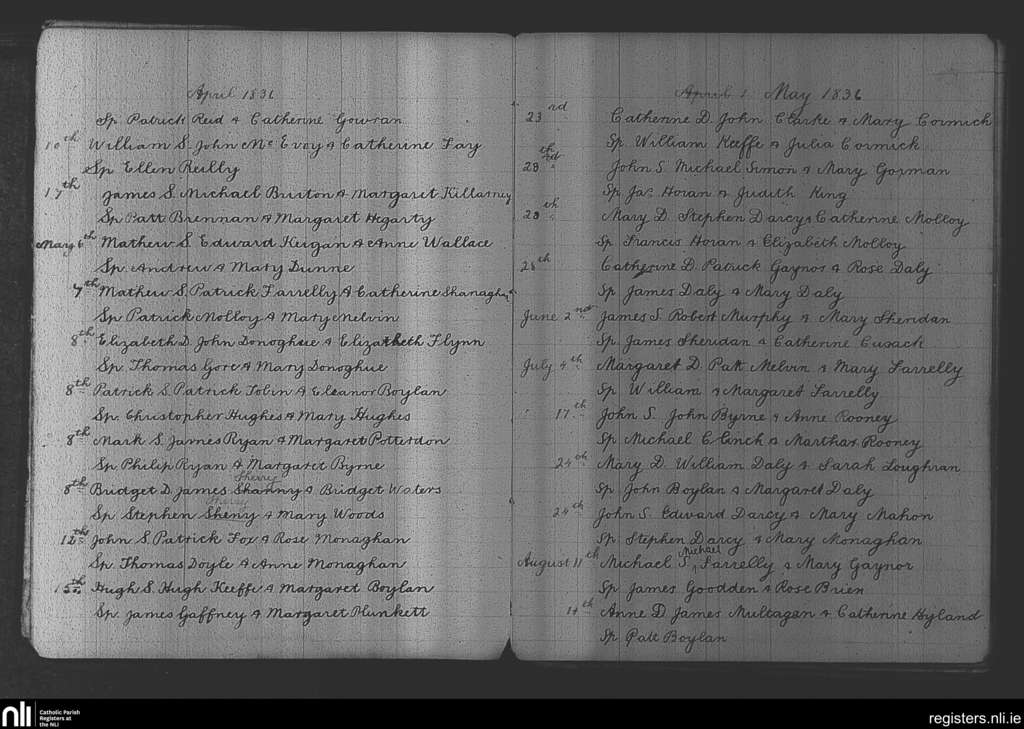 April 1836
Sp. Patrick Reid & Catherine Gowran
10th William S. John Mc Evoy & Catherine Fay
Sp Ellen Reilly
17th James S. Michael Burton & Margaret Killarney
Sp. Patt Brennan & Margaret Hegarty
May 6th Mathew S. Edward Keegan & Anne Wallace
Sp. Andrew & Mary Dunne
7th Mathew S. Patrick Farrelly & Catherine Shanaghy
Sp Patrick Molloy & Mary Melvin
8th Elizabeth D. John Donoghue & Elizabeth Flynn
Sp. Thomas Gore & Mary Donoghue
8th Patrick S. Patrick Tobin & Eleanor Boylan
Sp. Christopher Hughes & Mary Hughes
8th Mark S. James Ryan & Margaret Potterdon
Sp Philip Ryan & Margaret Byrne
Sherry
8th Bridget D. James Shanny & Bridget Waters
Sherry
Sp. Stephen Sheny & Mary Woods
12th John S. Patrick Fox & Rose Monaghan
Sp. Thomas Doyle & Anne Monaghan
15th Hugh S. Hugh Keeffe & Margaret Boylan
Sp. James Gaffney & Margaret Plunkett
April & May 1836
23rd Catherine D. John Clarke & Mary Cormick
Sp. William Keeffe & Julia Cormick
28th John S. Michael Simon & Mary Gorman
Sp. Jas. Horan & Judith King
28th Mary D. Stephen Darcy & Catherine Molloy
Sp. Francis Horan & Elizabeth Molloy
28th Catherine D. Patrick Gaynor & Rose Daly
Sp James Daly & Mary Daly
June 2nd James S. Robert Murphy & Mary Sheridan
Sp. James Sheridan & Catherine Cusack
July 4th Margaret D. Patt Melvin & Mary Farrelly
Sp William & Margaret Farrelly
17th John S. John Byrne & Anne Rooney
Sp Michael Clinch & Martha Rooney
24th Mary D. William Daly & Sarah Loughran
Sp John Boylan & Margaret Daly
24th John S. Edward Darcy & Mary Mahon
Sp. Stephen Darcy & Mary Monaghan
Michael
August 11th Michael S. Farrelly & Mary Gaynor
Sp James Goodden & Rose Brien
14th Anne D James Multagan & Catherine Hyland
Sp Patt Boylan
nli
Catholic Parish
Registers at
the NLI
registers.nli.ie